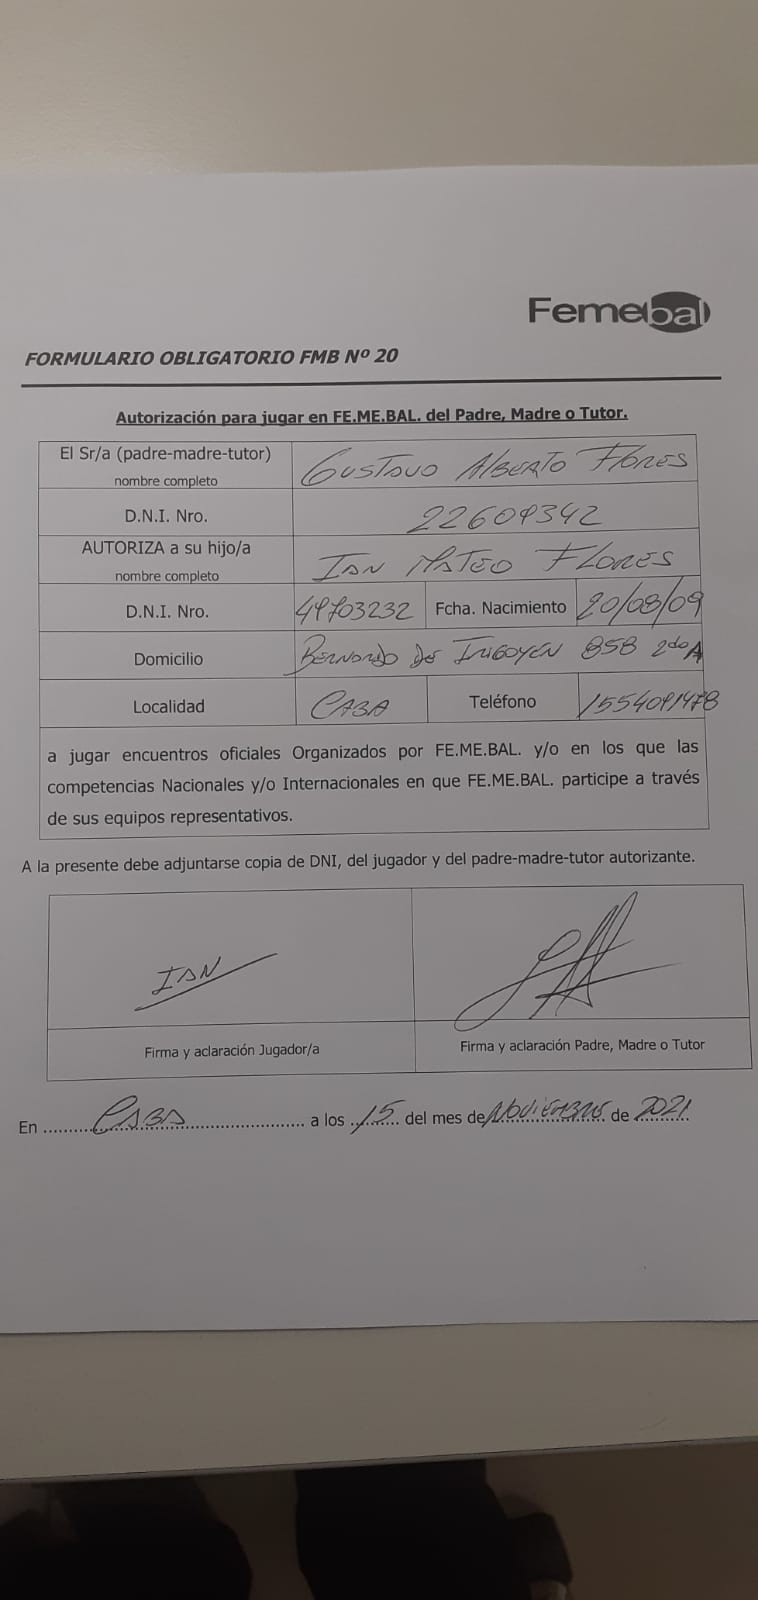 Femebal
FORMULARIO OBLIGATORIO FMB Nº 20
Autorización para jugar en FE.ME.BAL. del Padre, Madre o Tutor.
El Sr/a (padre-madre-tutor) nombre completo GUSTAVO ALBERTO FLORES
D.N.I. Nro. 22609342
AUTORIZA a su hijo/a nombre completo IAN MATEO FLORES
D.N.I. Nro. 49703232 Fcha. Nacimiento 20/08/09
Domicilio BERNARDO DE IRIGOYEN 858 2do A
Localidad CABA Teléfono 1554091478
a jugar encuentros oficiales Organizados por FE.ME.BAL. y/o en los que las
competencias Nacionales y/o Internacionales en que FE.ME.BAL. participe a través
de sus equipos representativos.
A la presente debe adjuntarse copia de DNI, del jugador y del padre-madre-tutor autorizante.
IAN
Firma y aclaración Jugador/a Firma y aclaración Padre, Madre o Tutor
En CABA a los 15 del mes de NOVIEMBRE de 2021